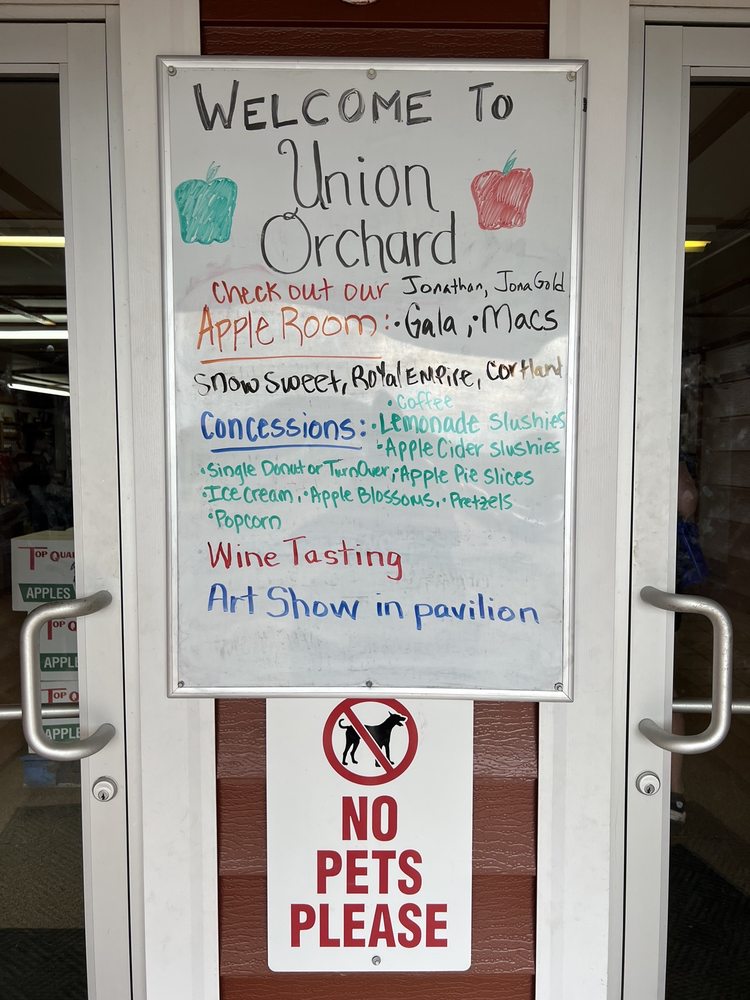 WELCOME TO
Union
Orchard
Check out our Jonathan, JonaGold
Apple Room: • Gala, • Macs
Snow Sweet, Royal Empire, Cortland
• Coffee
Concessions: • Lemonade Slushies
• Apple Cider Slushies
• Single Donut or TurnOver, • Apple Pie Slices
• Ice Cream, • Apple Blossoms, • Pretzels
• Popcorn
Wine Tasting
Art Show in pavilion
NO
PETS
PLEASE
TOP QUA
APPLES
TOP Q
APPLE
TOP Q
APPLE